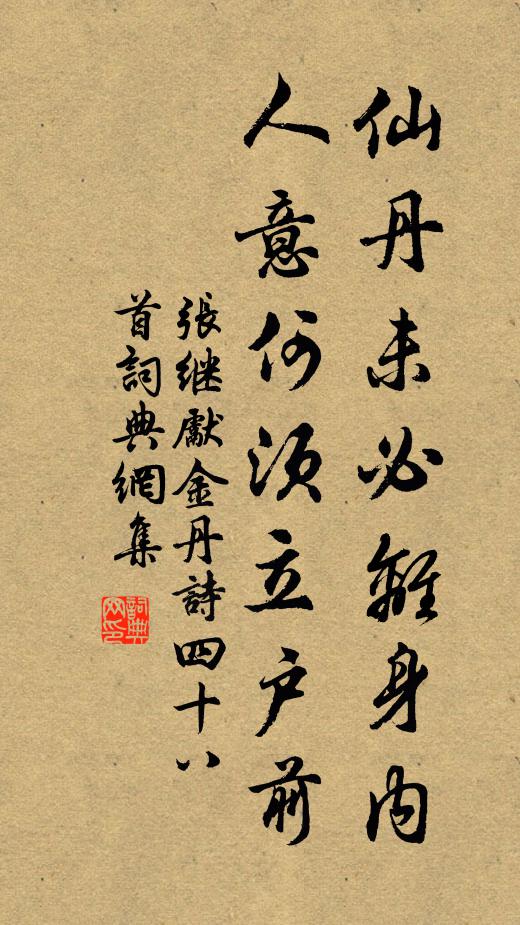 仙丹未必離身内
人意何須立户前
張継獻金丹詩四十八
首詞典網集
詞典
网印